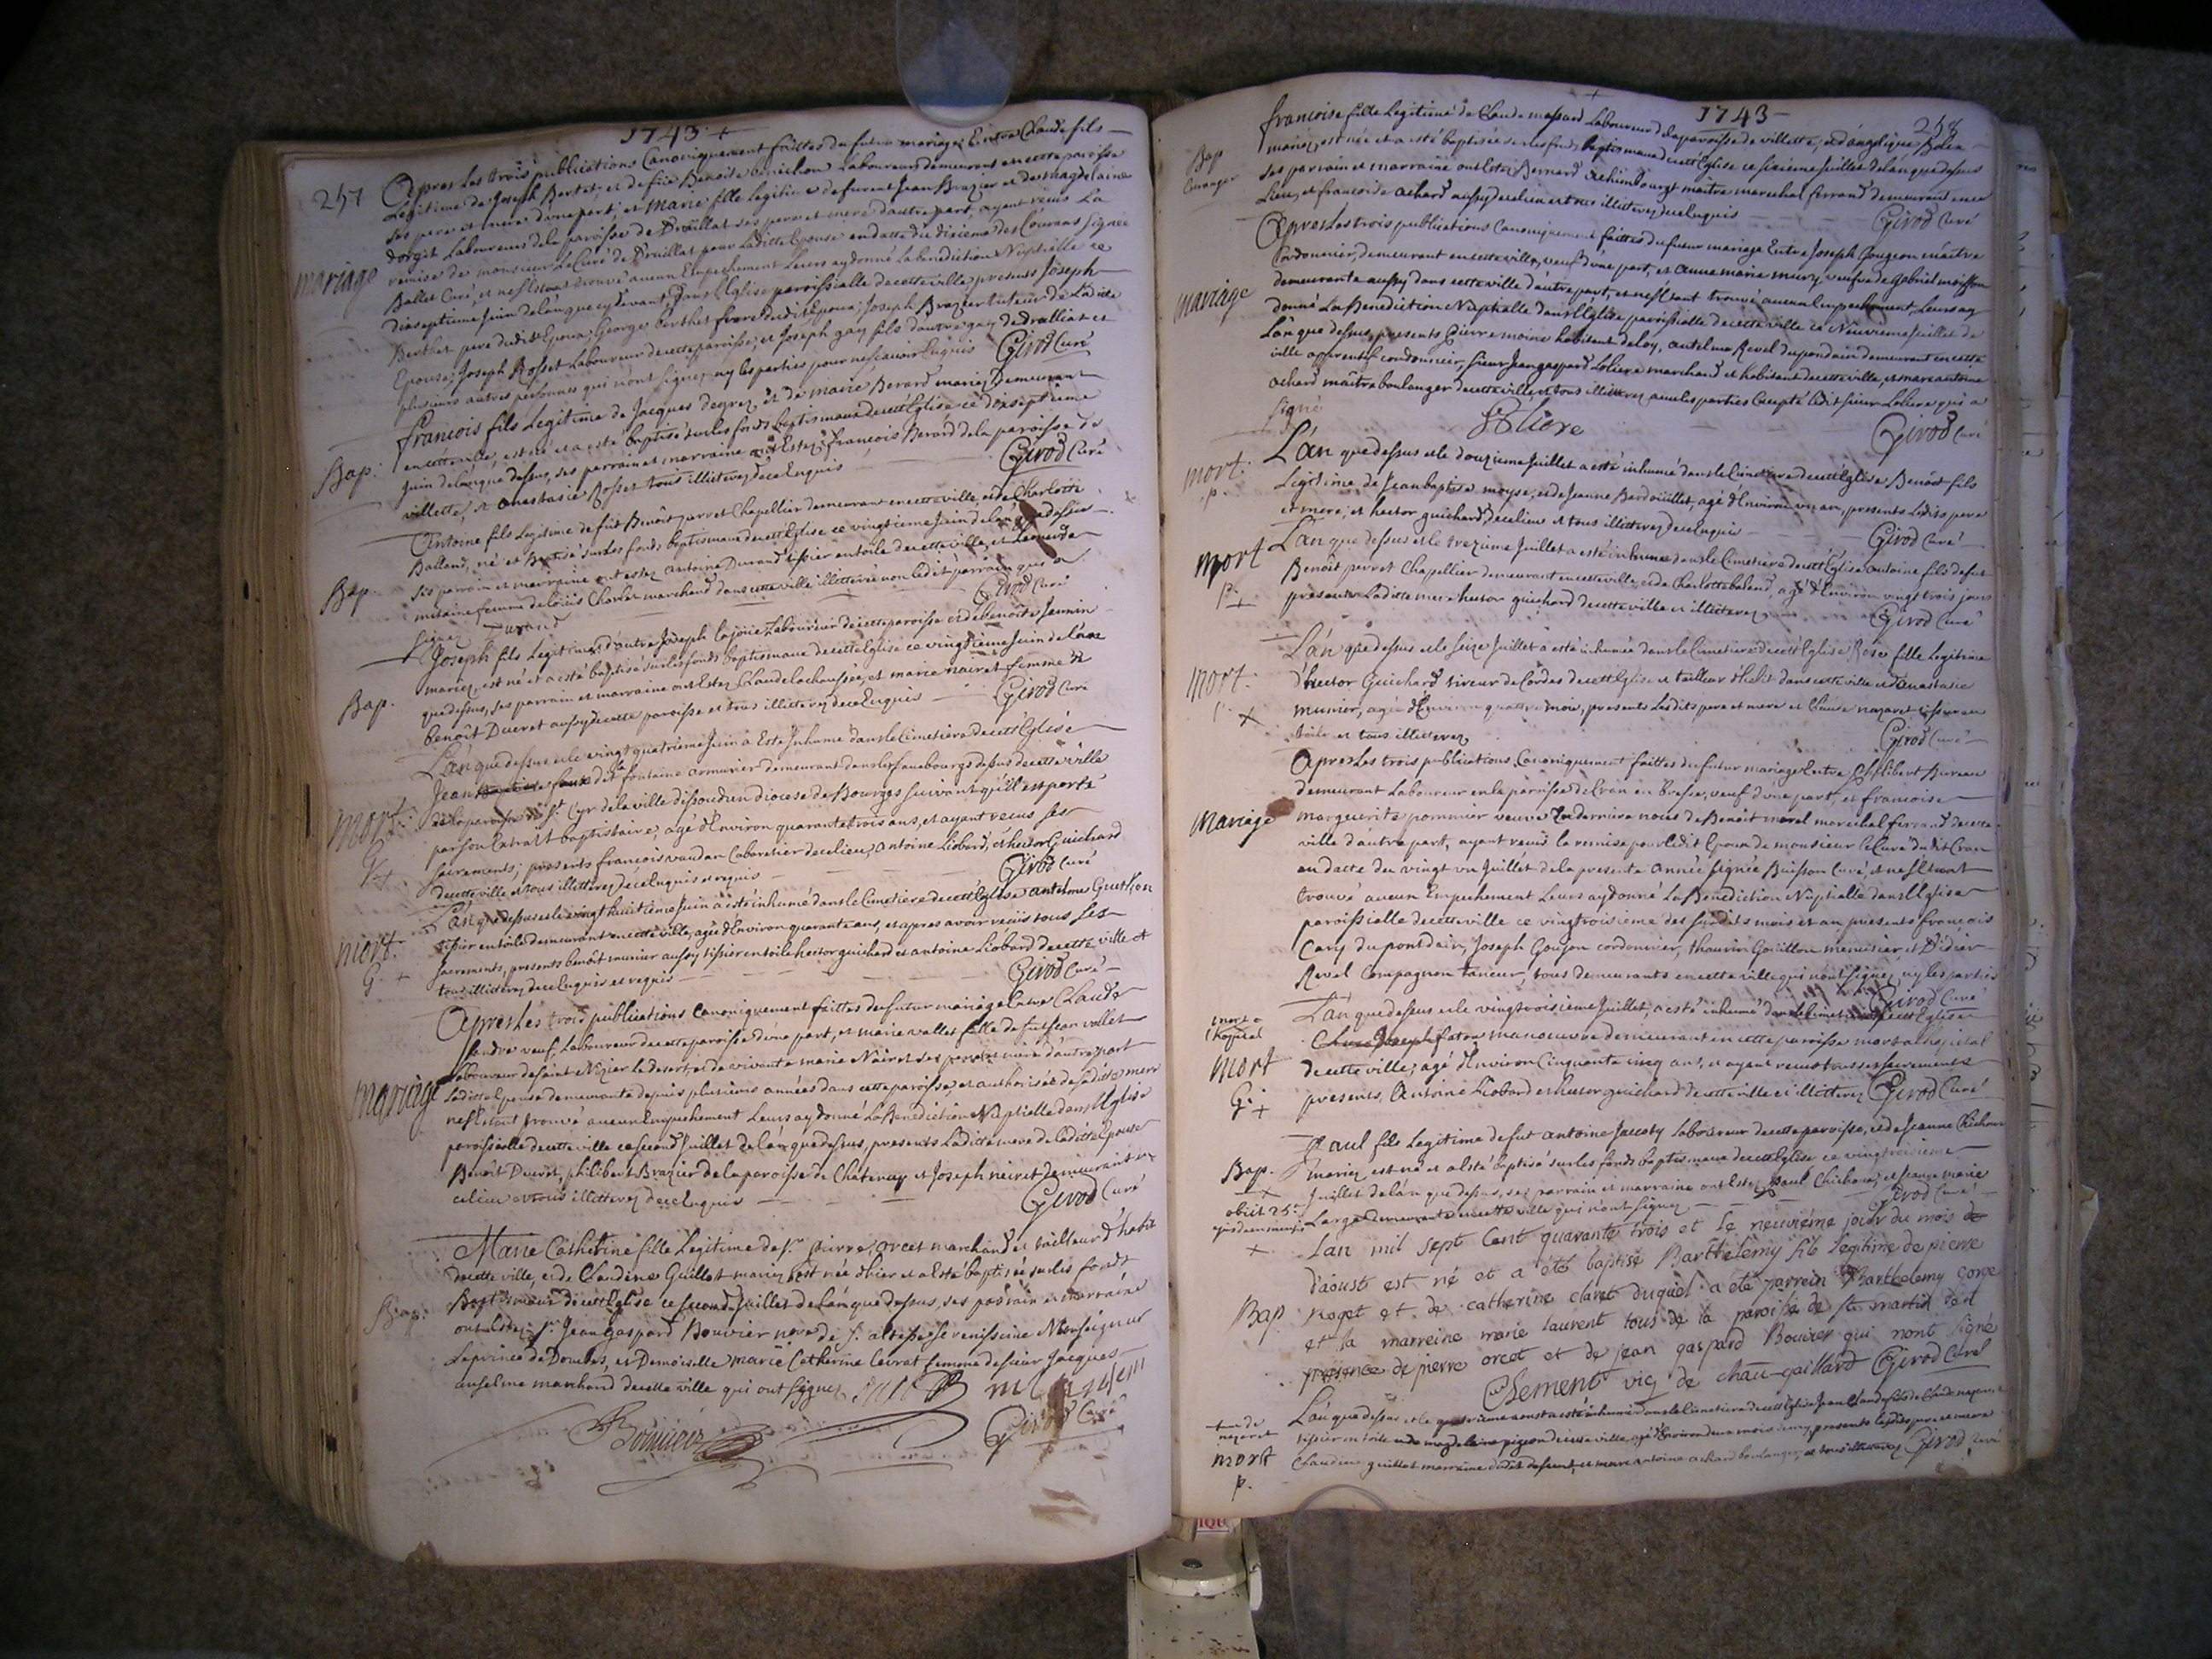 1743 +
257
Apres les trois publications Canoniquement faittes du futur mariage Entre Claude fils
Legitime de Joseph Bertet, et de füe Benoite benichon Laboureurs demeurant en cette paroisse
ses pere et mere d'une part; et Marie fille legitime de furent Jean Brazier et de Magdelaine
dorgit Laboureurs de la paroisse de Druillat ses pere et mere d'autre part, ayant veüs La
remise de monsieur Le Curé de Druillat pour Laditte Epouse en datte du dixieme des Courans signée
mariage
Ballet Curé, et ne s'Etant trouvé aucun Empechement Leurs ay donné La benediction Nuptialle ce
dixseptieme Juin de l'an que cy devant dans l'Eglise paroissialle de cette ville, presents Joseph
Berthet pere dudit Epoux, George berthet frere dudit Epoux, Joseph Brazier tuteur de Laditte
Epouse, Joseph Rosset Laboureur de cette paroisse, et Joseph gay fils d'autre gay de druillat et
plusieurs autres personnes qui n'ont signez ny les parties pour ne sçavoir Enquis Girod Curé
francois fils Legitime de Jacques degrez et de marie Berard mariez demeurant
Bap:
en cette ville, est né et a esté baptisé sur les fonds baptismaux de cett Eglise ce dixseptieme
Juin de l'an que dessus, ses parrain et marraine ont Estez francois Berard de la paroisse de
villette, et anastasie Rosset tous illitterez de ce Enquis Girod Curé
Antoine fils Legitime de füt Benoit perret Chapellier demeurant en cette ville, et de Charlotte
Bap.
Balland, né et Baptisé sur les fonds baptismaux de cett Eglise ce vingtieme Juin de l'an que dessus
ses parrain et marraine ont estez antoine Durand tissier en toile de cette ville, et
mitaine femme de Loüis Charlet marchand dans cette ville illitterée non Ledit parrain qui a
signé Durand Girod Curé
Joseph fils Legitime d'autre Joseph Lajoüe Laboureur de cette paroisse et de benoite Jannin
Bap.
mariez, est né et a esté baptisé sur les fonds baptismaux de cett Eglise ce vingtieme Juin de l'an
que dessus, ses parrain et marraine ont Estez Claude Lachaussée, et marie nairet femme de
benoit Ducret aussy de cette paroisse et tous illitterez de ce Enquis Girod Curé
L'an que dessus et le vingt quatrieme Juin a Esté Inhumé dans le Cimetiere de cett Eglise
Jean dit fontaine armurier demeurant dans les fauxbourgs dessus de cette ville
mort:
de la paroisse de St Cyr de la ville dissoudun diocese de Bourges suivant qu'il est porté
par son Extrait baptistaire, agé d'Environ quarante trois ans, et ayant recus ses
G +
sacrements, presents francois vaudan Cabaretier de ce lieu, antoine Liobard, et hector Guichard
de cette ville et tous illitterez de ce Enquis et requis Girod Curé
L'an que dessus et le vingt huitieme Juin a esté inhumé dans le Cimetiere de cett Eglise antelme
mort.
tissier en toile demeurant en cette ville, agé d'Environ quarante ans, et apres avoir recus tous ses
G. +
sacrements, presents benoit munier aussy tissier en toile, hector guichard et antoine Liobard de cette ville et
tous illitterez de ce Enquis et requis Girod Curé
Apres Les trois publications Canoniquement faittes du futur mariage Entre Claude
veuf, Laboureur de cette paroisse d'une part, et marie vallet fille de fut Jean vallet
Laboureur de saint Nizier le desert, et de vivante marie Nairet ses pere et mere d'autre part
mariage
Laditte Epouse demeurante depuis plusieurs années dans cette paroisse, et authorisée de sa ditte mere
ne s'Etant trouvé aucun Empechement Leurs ay donné La Benediction Nuptialle dans l'Eglise
paroissialle de cette ville ce second Juillet de l'an que dessus, presents Laditte mere de laditte Epouse
Benoit Ducret, philibert Brazier de la paroisse de Chatenay et Joseph neiret demeurant en
ce lieu et tous illitterez de ce Enquis Girod Curé
Marie Catherine fille Legitime de Sr pierre orcet marchand et tailleur d'habit
de cette ville, et de Claudine Guillot mariez, est née d'hier et a Esté baptisée sur les fonds
Bap:
Baptismaux de cett Eglise ce second Juillet de l'an que dessus, ses parrain et marraine
ont Estez Sr Jean Gaspard Bouvier de S: altesse serenissime Monseigneur
Le prince de Dombes, et Demoiselle marie Catherine levrat femme de sieur Jacques
anselme marchand de cette ville qui ont signez
Bouvier Girod Curé
1743
258
francoise fille Legitime de Claude massard Laboureur de la paroisse de villette, et d'angelique
Bap
mariez, est née et a esté baptisée sur les fonds baptismaux de cett Eglise ce sixieme Juillet de l'an que dessus
Etranger
ses parrain et marraine ont Estez Bernard maitre marechal ferrand demeurant en ce
Lieu, et francoise achard aussy de ce lieu et tous illitterez de ce Enquis Girod Curé
Apres Les trois publications Canoniquement faittes du futur mariage Entre Joseph Goujeon maitre
Cordonnier, demeurant en cette ville, veuf d'une part, et anne marie veufve de Gabriel moisson
mariage
demeurante aussy dans cette ville d'autre part, et ne s'Etant trouvé aucun Empechement, Leurs ay
donné La Benediction Nuptialle dans l'Eglise paroissialle de cette ville ce Neuvieme Juillet de
L'an que dessus, presents pierre moine habitant de loy, antelme Revel du pondain demeurant en cette
ville apprentif cordonnier, sieur Jean gaspard Loliere marchand et habitant de cette ville, et marc antoine
achard maitre boulanger de cette ville et tous illitterez avec les parties Excepté ledit sieur Loliere qui a
signé
Loliere Girod Curé
L'an que dessus et le douzieme Juillet a esté inhumé dans le Cimetiere de cett Eglise Benoit fils
mort.
Legitime de Jean baptiste moyse, et de Jeanne Bardoüillet, agé d'Environ un an, presents Lesdits pere
p.
et mere, et hector guichard de ce lieu et tous illitterez de ce Enquis Girod Curé
L'an que dessus et le treizieme Juillet a esté inhumé dans le Cimetiere de cett Eglise antoine fils de fut
mort
Benoit perret Chapellier demeurant en cette ville, et de Charlotte baland, agé d'Environ vingt trois jours
p. +
presents Laditte mere hector guichard de cette ville et illitterez Girod Curé
L'an que dessus et le seize Juillet a esté inhumée dans le Cimetiere de cett Eglise Rose fille Legitime
mort.
d'hector Guichard tireur de Cordes de cett Eglise et tailleur d'habit dans cette ville et d'anastasie
munier, agée d'Environ quattre mois, presents Lesdits pere et mere et Claude nazaret tissier en
+
toile et tous illitterez Girod Curé
Apres Les trois publications Canoniquement faittes du futur mariage Entre philibert Bureau
demeurant Laboureur en la paroisse de Cran en Bresse, veuf d'une part, et francoise
Mariage
marguerite pommier veuve En derniere noces de Benoit morel marechal ferrand de cette
ville d'autre part, ayant veüs la remise pour ledit Epoux de monsieur le Curé dudit Cran
en datte du vingt un Juillet de la presente année signée Buisson Curé, et ne s'Etant
trouvé aucun Empechement Leurs ay donné La Benediction Nuptialle dans l'Eglise
paroissialle de cette ville ce vingt troisieme des susdits mois et an, presents francois
Cary du pontdain, Joseph Goujon cordonnier, thaurin Gouillon menuisier, et Didier
Reval Compagnon tanneur, tous demeurants en cette ville qui n'ont signez ny les parties
Girod Curé
L'an que dessus et le vingt troisieme Juillet, a esté inhumé dans le Cimetiere de cett Eglise
mort a
l'hopital
Joseph faton manoeuvre demeurant en cette paroisse mort a l'hopital
mort
de cette ville, agé d'Environ Cinquante cinq ans, et ayant recus tous ses sacrements
G. +
presents, Antoine Liobard et hector guichard de cette ville et illitterez Girod Curé
Paul fils Legitime de fut antoine Jaccoty Laboureur de cette paroisse, et de Jeanne Chichoux
Bap.
mariez est né et a esté baptisé sur les fonds baptismaux de cett Eglise ce vingt troisieme
+
Juillet de l'an que dessus, ses parrain et marraine ont Estez paul Chichoux, et Jeanne marie
obiit 25a
ejusdem mensis
Large demeurants en cette ville qui n'ont signez Girod Curé
+
Lan mil sept Cent quarante trois et le neuvieme jour du mois de
d'aoust est né et a été baptisé Barthelemy fils legitime de pierre
Bap
Roget et de catherine claret duquel a eté parrein Barthelemy gorge
et la marreine marie laurent tous de la paroisse de st martin de d
presence de pierre orcet et de jean gaspard Bouvier qui nont signé
Clement vic de chau-gaillard Girod Curé
L'an que dessus et le quatrieme aoust a esté inhumé dans le Cimetiere de cett Eglise Jean Claude fils de Claude nazaret
nazaret
tissier en toile et de magdelaine pigeon de cette ville, agé d'Environ deux mois demy, presents lesdits pere et mere
mort
Claudine guillot marraine dudit defunt, et marc antoine achard boulanger, et tous illitterez Girod Curé
p.